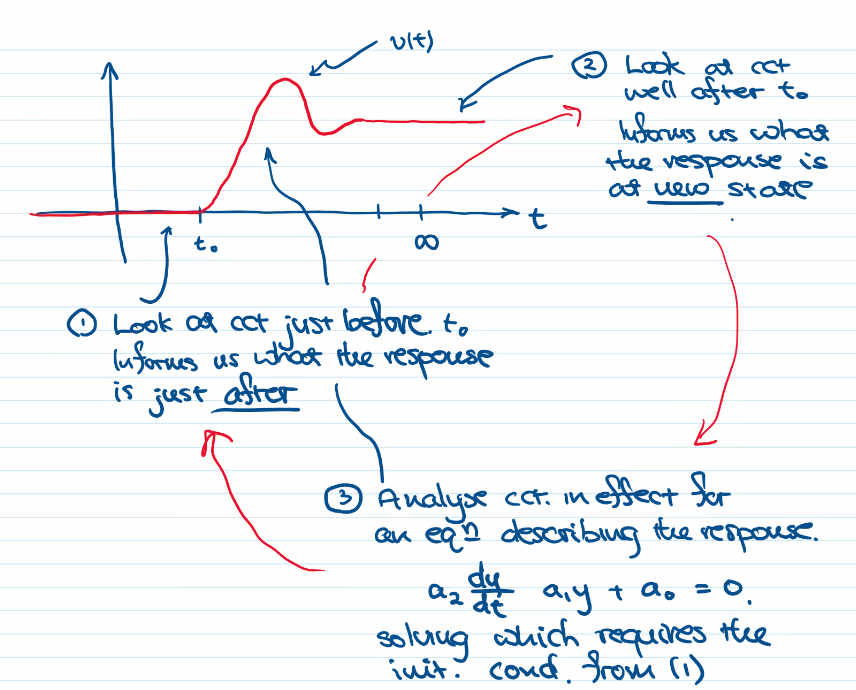 v(t)
② Look at cct
well after t₀
Informs us what
the response is
at new state
t
t₀
∞
① Look at cct just before t₀
Informs us what the response
is just after
③ Analyse cct. in effect for
an eqⁿ describing the response.
a₂ dy/dt a₁y + a₀ = 0.
solving which requires the
init. cond. from (1)